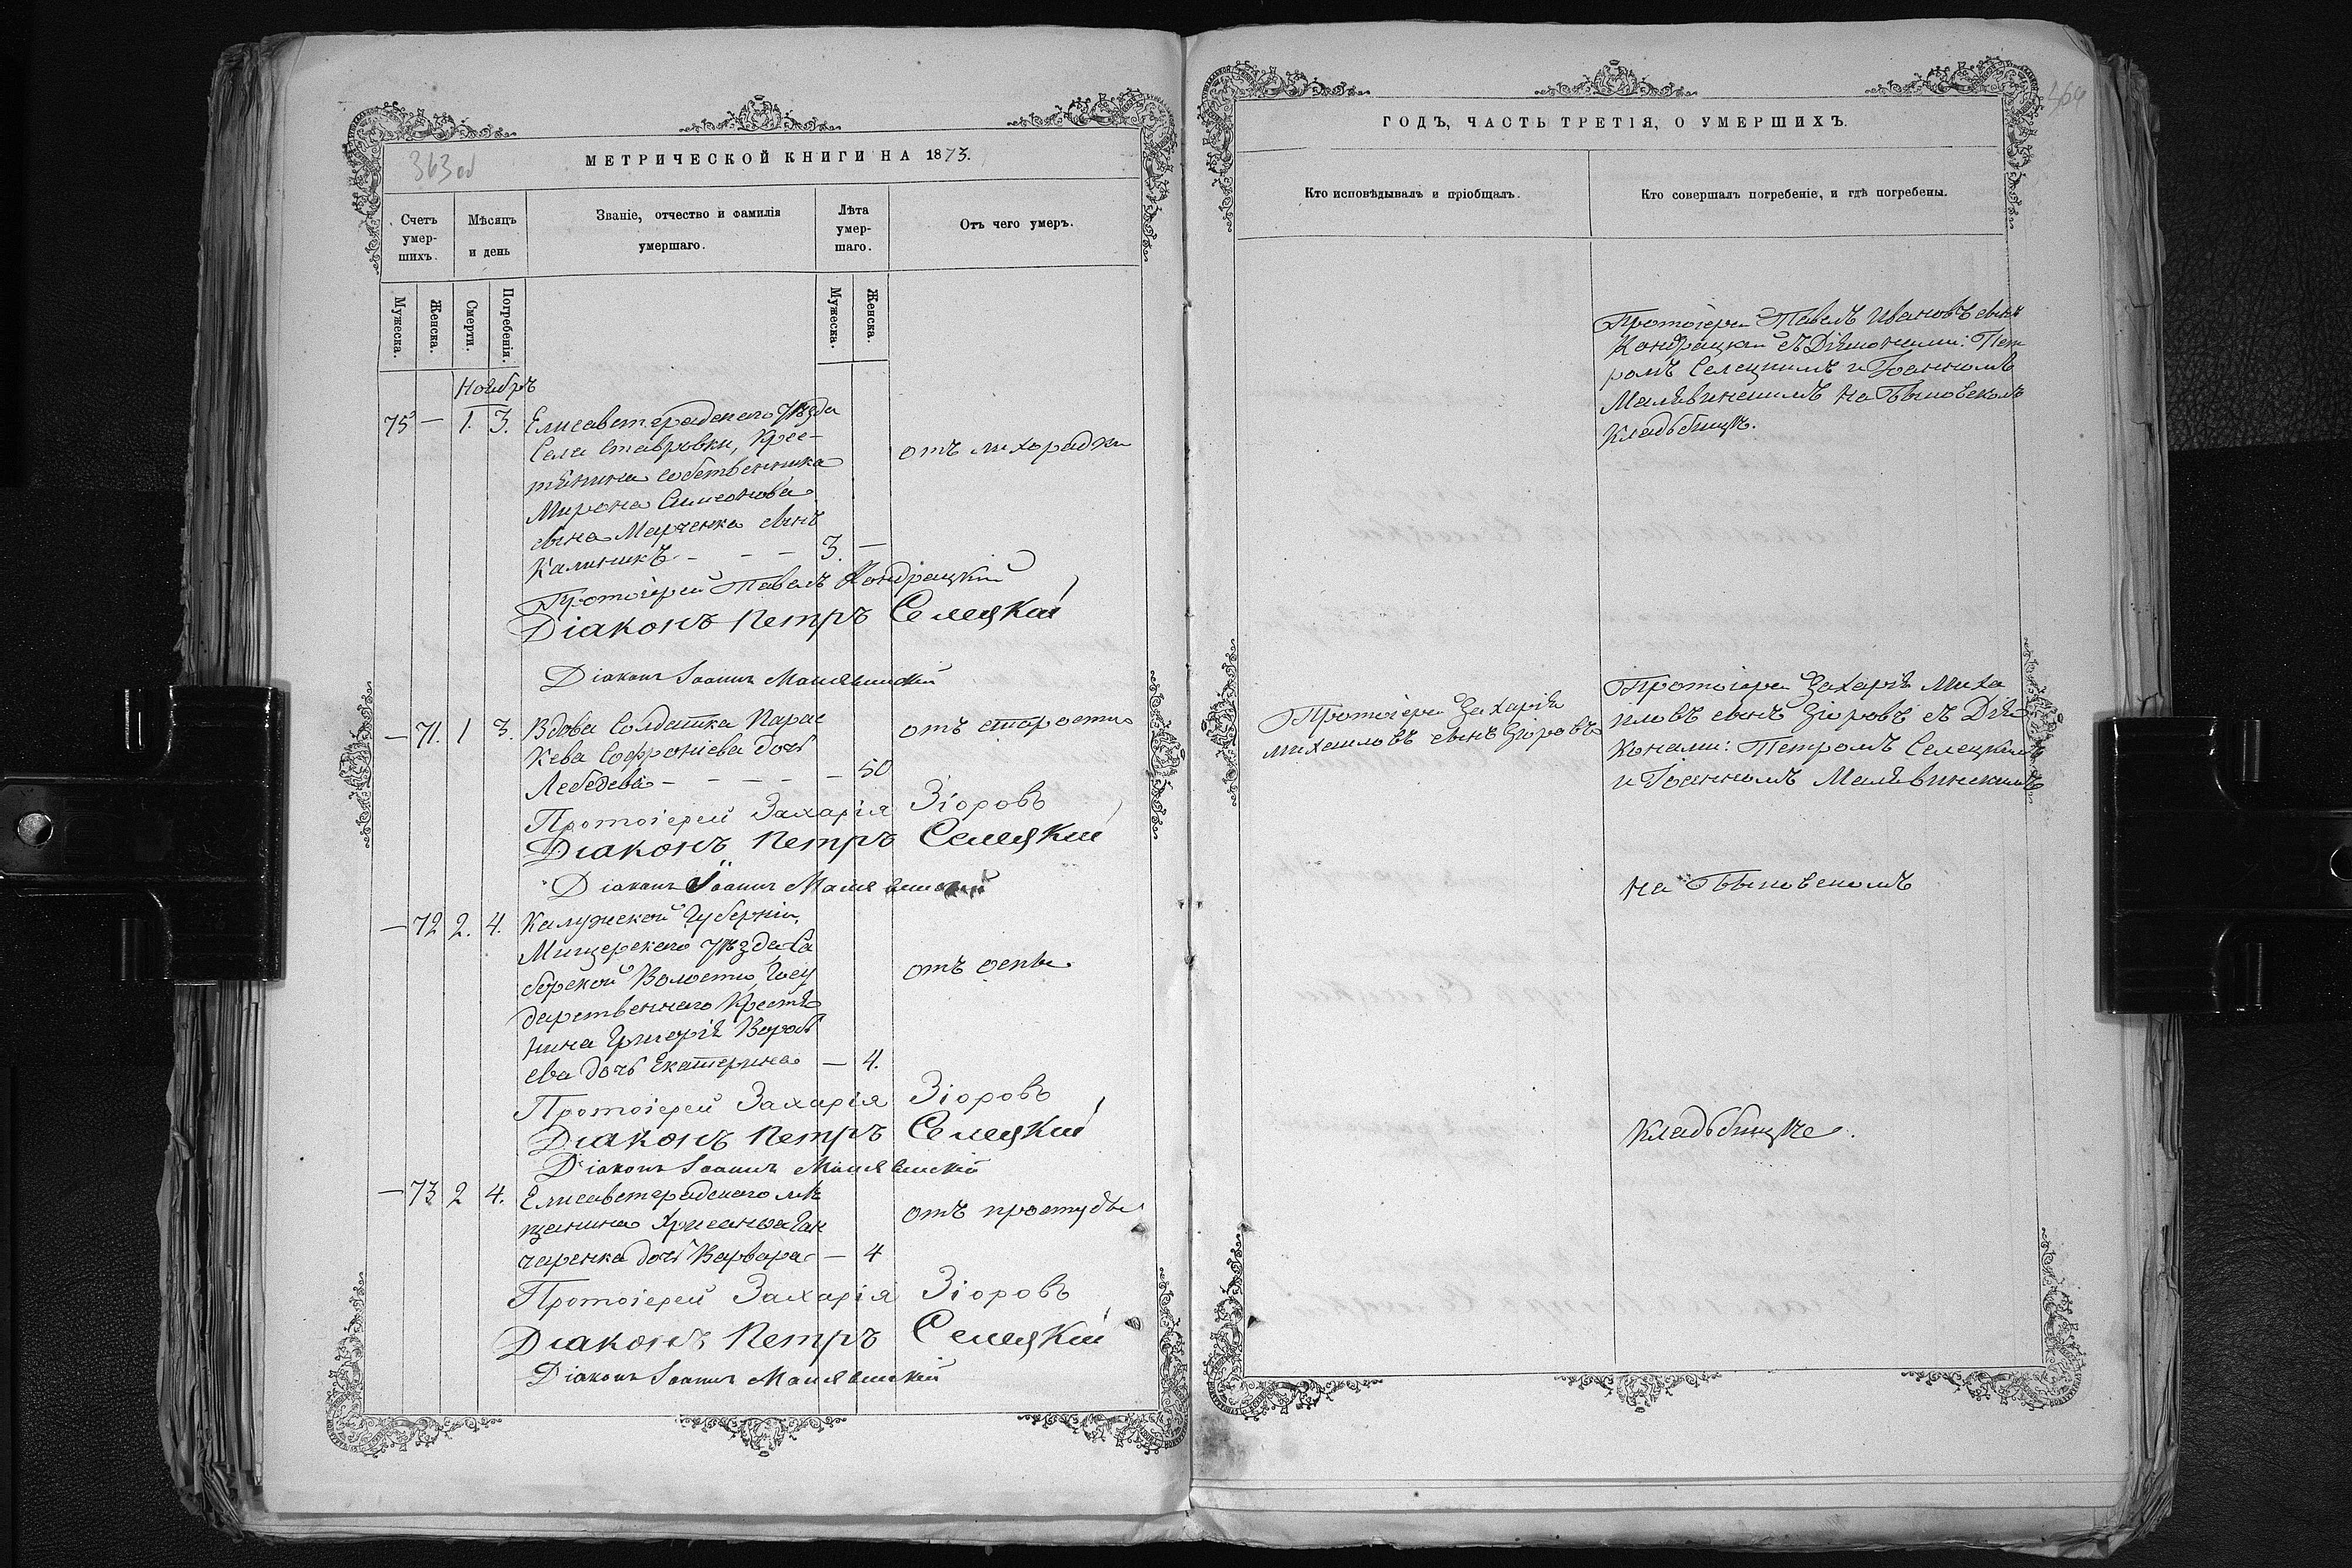 363 об
МЕТРИЧЕСКОЙ КНИГИ НА 1873.
Счетъ умер-шихъ.
Мѣсяцъ и день
Званіе, отчество и фамилія умершаго.
Лѣта умер-шаго.
Отъ чего умеръ.
Мужеска.
Женска.
Смерти.
Погребенія.
Мужеска.
Женска.
Ноябрь
75 — 1. 3. Елисаветградскаго Уѣзда
Села Ставровки, Крес-
тянина Собственника
отъ лихорадки
Мирона Симеонова
сына Марченка сынъ
Калиникъ - - - 3. —
Протоіерей Павелъ Кондрацкій
Діаконъ Петръ Селецкій
Діаконъ Іоаннъ Малявинскій
— 71. 1 3. Вдова Солдатка Парас
отъ старости
Кева Софроніева дочь
Лебедева - - - - — 50
Протоіерей Захарія Зіоровъ
Діаконъ Петръ Селецкій
Діаконъ Іоаннъ Малявинскій
— 72 2. 4. Калужской Губерніи,
Мищерскаго Уѣзда, Са
борской Волости, Госу
отъ оспы
дарственнаго Крестя
нина Григорія Вороб
ева дочь Екатерина — 4.
Протоіерей Захарія Зіоровъ
Діаконъ Петръ Селецкій
Діаконъ Іоаннъ Малявинскій
— 73 2 4. Елисаветградскаго мѣ
щанина Хрисанфа Ган
отъ простуды
чаренка дочь Варвара — 4
Протоіерей Захарія Зіоровъ
Діаконъ Петръ Селецкій
Діаконъ Іоаннъ Малявинскій
ГОДЪ, ЧАСТЬ ТРЕТІЯ, О УМЕРШИХЪ.
Кто исповѣдывалъ и пріобщалъ.
Кто совершалъ погребеніе, и гдѣ погребены.
Протоіерей Павелъ Ивановъ сынъ
Кондрацкій съ Діяконами: Пет
ромъ Селецкимъ и Іоанномъ
Малявинскимъ на Быковскомъ
Кладьбищѣ.
Протоіерей Захарія
михаиловъ сынъ Зіоровъ
Протоіерей Захарія Миха
иловъ сынъ Зіоровъ съ Дія
конами: Петромъ Селецкимъ
и Іоанномъ Малявинскимъ
на Быковскомъ
Кладьбищѣ.